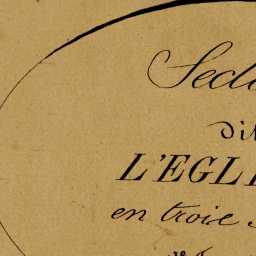 Sect
dit
L'EGLI
en trois